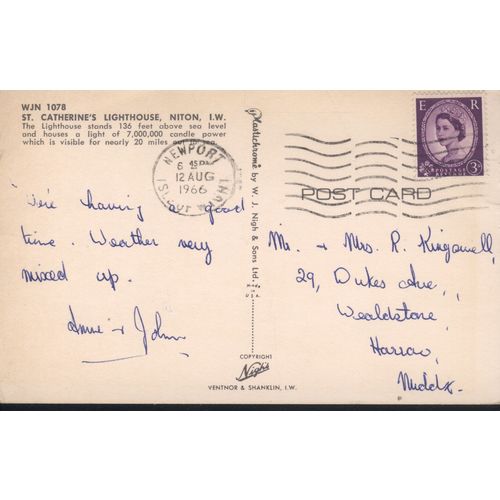 WJN 1078
ST. CATHERINE'S LIGHTHOUSE, NITON, I.W.
The Lighthouse stands 136 feet above sea level
and houses a light of 7,000,000 candle power
which is visible for nearly 20 miles out to sea.
NEWPORT
6 45 PM
12 AUG
1966
I. OF WIGHT
We're having a good
time. Weather very
mixed up.
Anne + John
Plastichrome by W. J. Nigh & Sons Ltd.
MADE IN U.S.A.
COPYRIGHT
Nigh
VENTNOR & SHANKLIN, I.W.
E R
POSTAGE
REVENUE
3D
POST CARD
Mr. + Mrs. R. Kingswell,
29, Dukes Ave,
Wealdstone,
Harrow,
Middx.